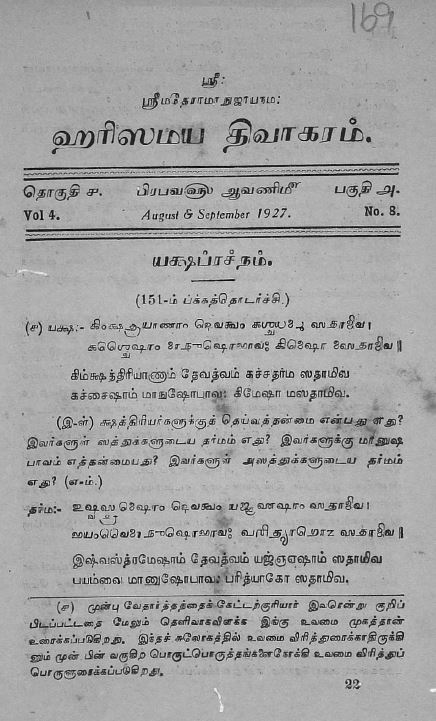 169
ஸ்ரீ:
ஸ்ரீமதேராமாநுஜாயநம:
ஹரிஸமய திவாகரம்.
தொகுதி ௪. பிரபவவ௵ ஆவணிமீ௴ பகுதி ௮.
Vol 4. August & September 1927. No. 8.
யக்ஷப்ரச்நம்.
(151-ம் பக்கத்தொடர்ச்சி.)
(௪) யக்ஷ:-
கிம்க்ஷத்திரியாணாம் தேவத்வம் கச்சதர்ம ஸதாமிவ
கச்சைஷாம் மாநுஷோபாவ: கிமேஷா மஸதாமிவ.
(இ-ள்) க்ஷத்திரியர்களுக்குத் தெய்வத்தன்மை என்பது எது?
இவர்களுள் ஸத்துக்களுடைய தர்மம் எது? இவர்களுக்கு மாநுஷ
பாவம் எத்தன்மையது? இவர்களுள் அஸத்துக்களுடைய தர்மம்
எது? (எ-ம்.)
தர்ம:-
இஷ்வஸ்த்ரமேஷாம் தேவத்வம் யஜ்ஞஏஷாம் ஸதாமிவ
பயம்வை மாநுஷோபாவ: பரித்யாகோ ஸதாமிவ.
(௪) முன்பு வேதார்த்தத்தைக்கேட்டற்குரியார் இவரென்று குறிப்
பிடப்பட்டதை மேலும் தெளிவாகவிளக்க இங்கு உவமை முகத்தான்
உரைக்கப்படுகிறது. இந்தச் சுலோகத்தில் உவமை விரித்துரைக்காதிருக்கி
னும் முன் பின் வருகிற பொருட்பொருத்தங்களைநோக்கி உவமை விரித்துப்
பொருளுரைக்கப்படுகிறது.
22